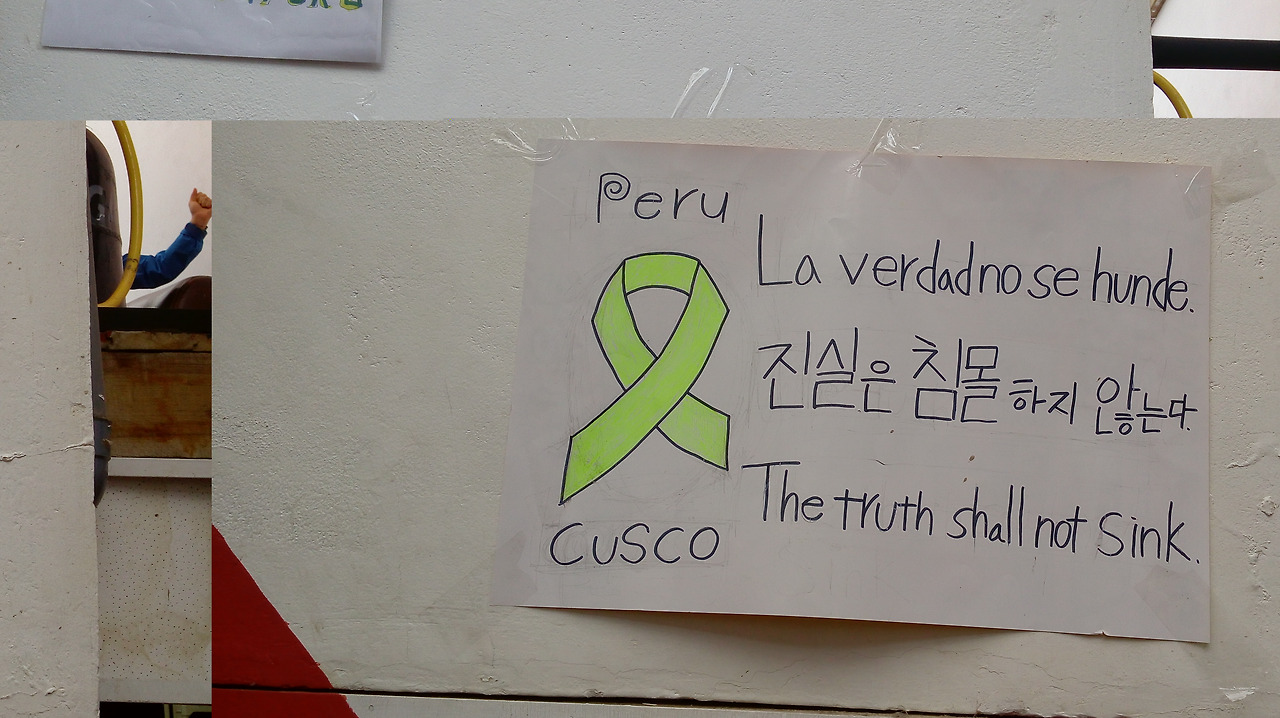 Peru
La verdad no se hunde.
진실은 침몰하지 않는다.
The truth shall not sink.
CUSCO